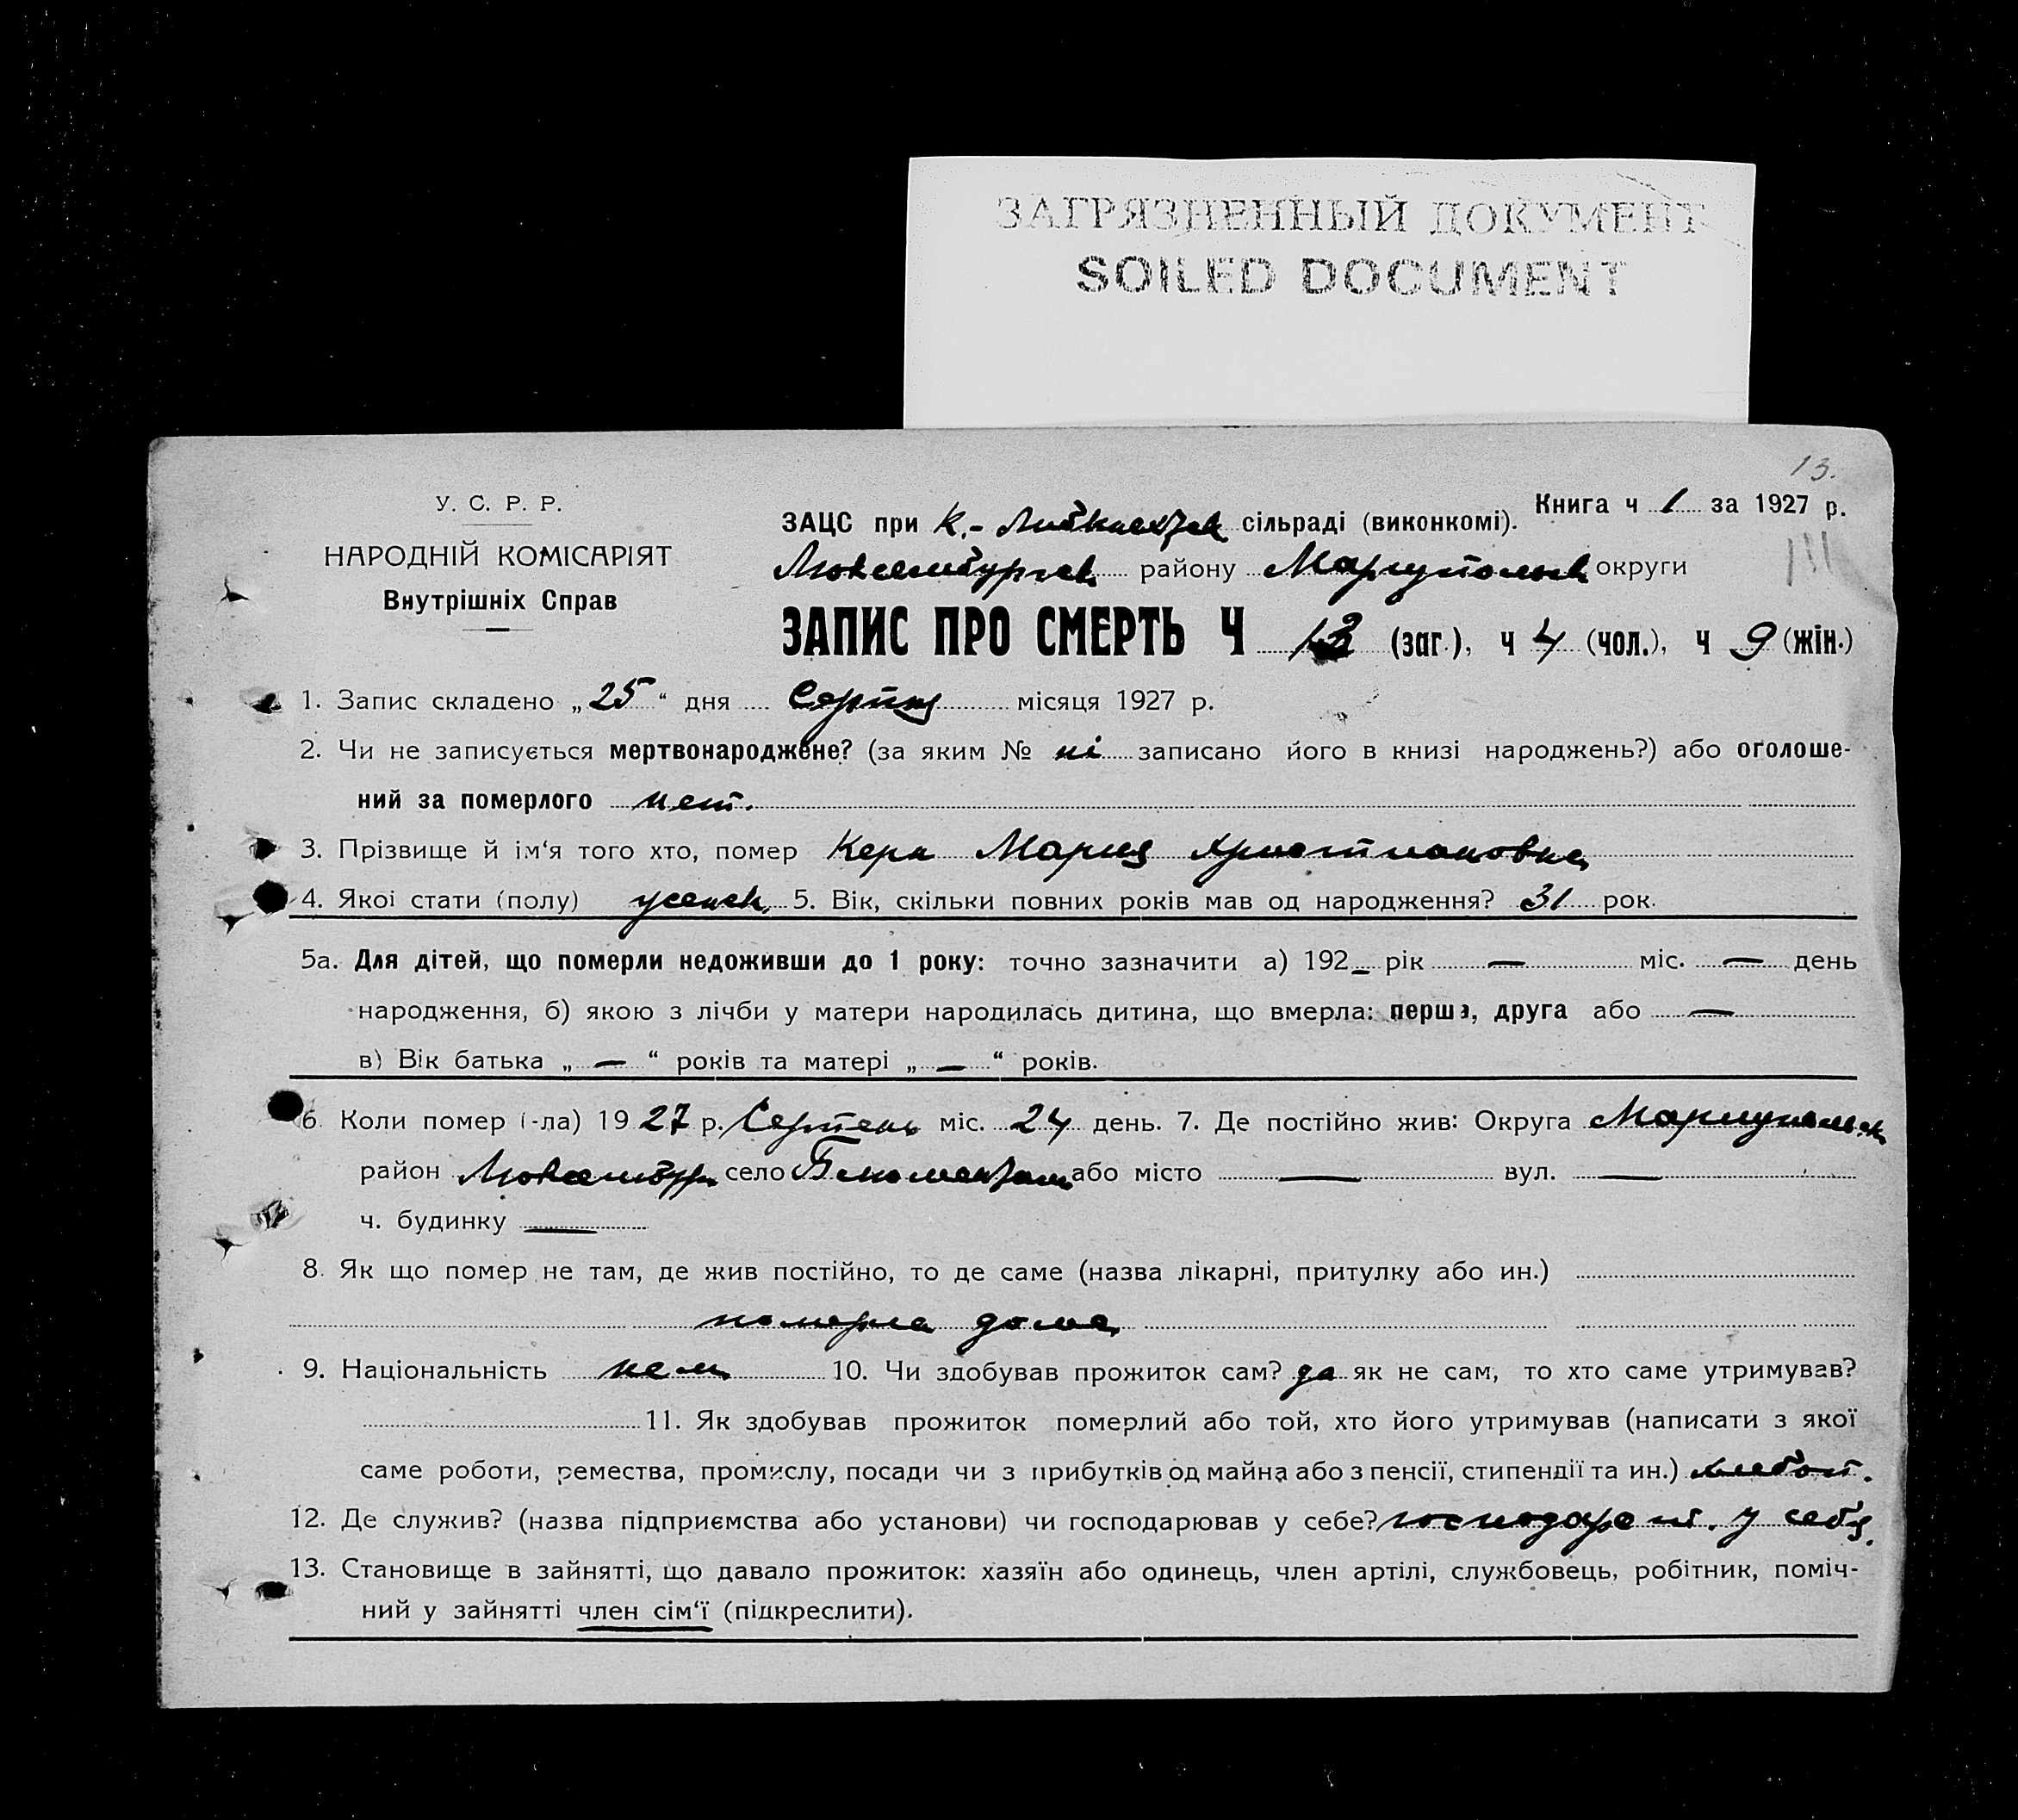 ЗАГРЯЗНЕННЫЙ ДОКУМЕНТ
SOILED DOCUMENT
13.
У. С. Р. Р.
НАРОДНІЙ КОМІСАРІЯТ
Внутрішніх Справ
Книга ч 1 за 1927 р.
ЗАЦС при К.- сільраді (виконкомі).
Люксембургск району Мариупольск округи
ЗАПИС ПРО СМЕРТЬ Ч 13 (заг.), ч 4 (чол.), ч 9 (жін.)
1. Запис складено „25“ дня Серпня місяця 1927 р.
2. Чи не записується мертвонароджене? (за яким № ні записано його в книзі народжень?) або оголоше-
ний за померлого нет.
3. Прізвище й ім‘я того хто, помер Керн Мария Христиановна
4. Якої стати (полу) женск. 5. Вік, скільки повних років мав од народження? 31 рок.
5а. Для дітей, що померли недоживши до 1 року: точно зазначити а) 192 – рік — міс. — день
народження, б) якою з лічби у матери народилась дитина, що вмерла: перша, друга або —
в) Вік батька „ — “ років та матері „ — “ років.
6. Коли помер (-ла) 1927 р. Серпень міс. 24 день. 7. Де постійно жив: Округа Мариупольск
район Люксембур село або місто — вул. —
ч. будинку —
8. Як що помер не там, де жив постійно, то де саме (назва лікарні, притулку або ин.)
померла дома
9. Національність нем 10. Чи здобував прожиток сам? да як не сам, то хто саме утримував?
11. Як здобував прожиток померлий або той, хто його утримував (написати з якої
саме роботи, ремества, промислу, посади чи з прибутків од майна або з пенсії, стипендії та ин.) хлебоп.
12. Де служив? (назва підприємства або установи) чи господарював у себе? у себя.
13. Становище в зайнятті, що давало прожиток: хазяїн або одинець, член артілі, службовець, робітник, поміч-
ний у зайнятті член сім‘ї (підкреслити).